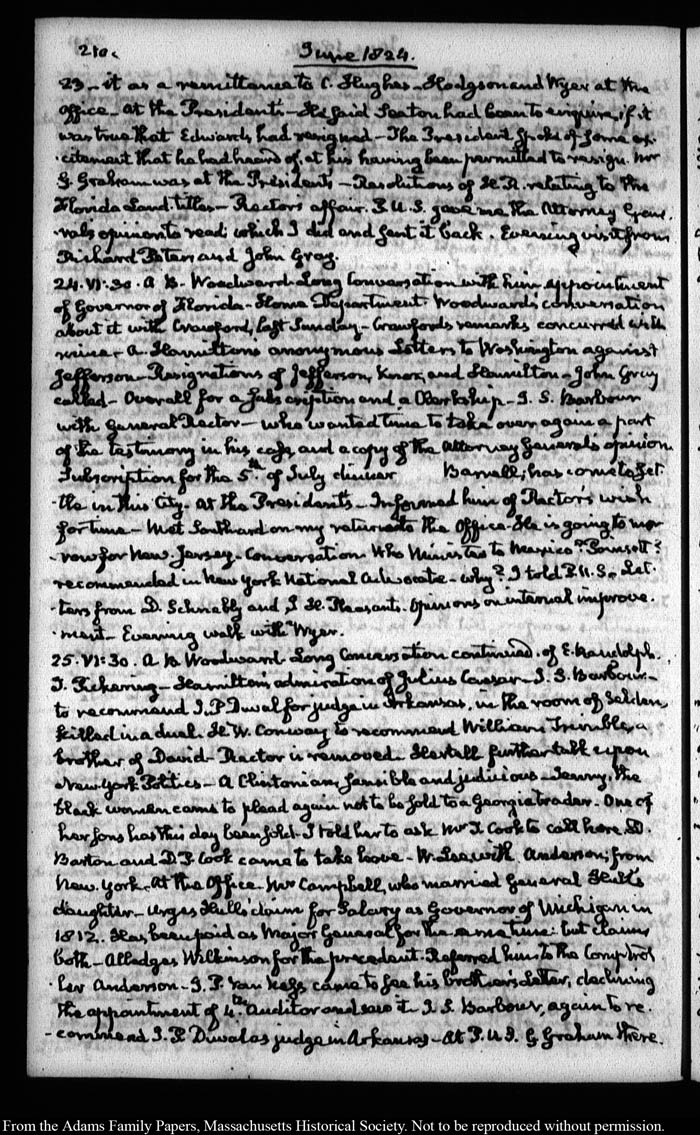 210.
June 1824.
23 - it as a remittance to C. Hughes - Hodgson and Wyer at the
office - at the President's - He said Seaton had been to enquire, if it
was true that Edwards had resigned - The President spoke of some ex-
-citement that he had heard of, at his having been permitted to resign. Mr
G. Graham was at the President's - Resolutions of H. R. relating to the
Florida Land titles - Rector's affair. P. U. S. gave me the Attorney Gene-
-ral's opinion to read; which I did and sent it back. Evening visit from
Richard Peters and John Gray.
24. VI:30. A B. Woodward. Long Conversation with him appointment
of Governor of Florida - Home Department. Woodward's conversation
about it with Crawford, last Sunday - Crawford's remarks concurred with
mine - A. Hamilton's anonymous Letters to Washington against
Jefferson - Resignations of Jefferson, Knox, and Hamilton - John Gray
called - Overall for a subscription and a Clerkship - J. S. Barbour
with General Rector - who wanted time to take over again a part
of the testimony in his case, and a copy of the Attorney General's opinion
Subscription for the 5th of July dinner Barrell; has come to set-
-tle in this City. At the President's - Informed him of Rector's wish
for time - Met Southard on my return to the Office - He is going to mor-
-row for New-Jersey. Conversation. Who Minister to Mexico? Poinsett?
recommended in New York National Advocate - why? I told P. U. S. Let-
-ters from D. Schnebly and J. H. Pleasants. Opinions on internal improve-
-ment - Evening walk with Wyer.
25. VI:30. A B Woodward. Long Conversation continued. of E. Randolph.
T. Pickering - Hamilton's admiration of Julius Caesar - J. S. Barbour -
to recommend J. P Duval for judge in Arkansas, in the room of Selden,
killed in a duel. H. W. Conway to recommend William Trimble, a
brother of David - Rector is removed. further talk upon
New York Politics - A Clintonian, sensible and judicious - Jenny, the
black woman came to plead again not to be sold to a Georgia trader - One of
her sons has this day been sold. I told her to ask Mr J. Cook to call here. D.
Barton and D. P. Cook came to take leave - W. Lee, with Anderson; from
New York. At the Office - Mr Campbell, who married General Hull's
daughter - urges Hull's claim for Salary as Governor of Michigan in
1812. Has been paid as Major General for the same time: but claims
both - Alledges Wilkinson for the precedent. Referred him to the Comptrol-
-ler Anderson - J. P. Van Ness came to see his brother's Letter, declining
the appointment of 4th Auditor and saw it. J. S. Barbour, again to re-
-commend J. P. Duval as judge in Arkansas - At P. U. S. G. Graham there.
From the Adams Family Papers, Massachusetts Historical Society. Not to be reproduced without permission.